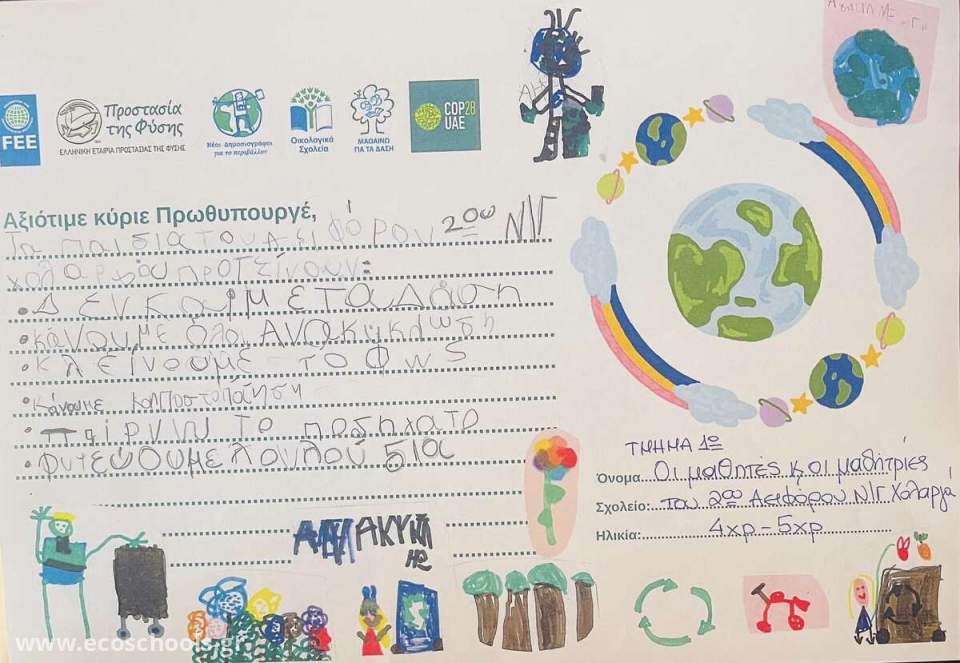 ΑΧΙΛΛΕ
"Γ"
FEE
Προστασία
της Φύσης
ΕΛΛΗΝΙΚΗ ΕΤΑΙΡΙΑ ΠΡΟΣΤΑΣΙΑΣ ΤΗΣ ΦΥΣΗΣ
Νέοι Δημοσιογράφοι
για το περιβάλλον
Οικολογικά
Σχολεία
ΜΑΘΑΙΝΩ
ΓΙΑ ΤΑ ΔΑΣΗ
COP28
UAE
Αξιότιμε κύριε Πρωθυπουργέ,
Τα παιδια του Αειφόρου 2ου Ν/Γ
χολαργού προτείνουν:
• Δεν καιμε τα Δάση
• κάνουμε όλοι Ανακύκλωση
• κλείνουμε το φως
• κάνουμε κομποστοποίηση
• παίρνω το ποδηλατο
• φυτεψουμε λουλούδια
ΤΜΗΜΑ 1ο
Όνομα: Οι μαθητές κ οι μαθήτριες
Σχολείο: του 2ου Αειφόρου Ν/Γ Χολαργού
Ηλικία: 4χρ - 5χρ
www.ecoschools.gr